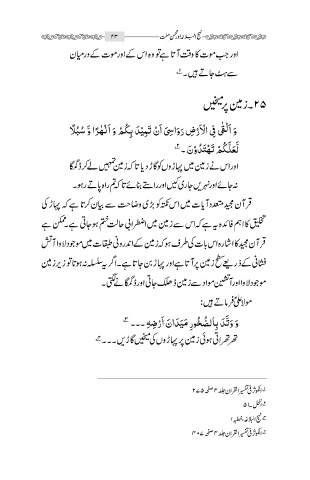 ۴۳
اور جب موت کا وقت آتا ہے تو وہ اس کے اور موت کے درمیان
سے ہٹ جاتے ہیں۔ ۱؎
۲۵۔ زمین پر میخیں
وَ اَلْقٰى فِی الْاَرْضِ رَوَاسِیَ اَنْ تَمِیْدَ بِكُمْ وَ اَنْهٰرًا وَّ سُبُلًا
لَّعَلَّكُمْ تَهْتَدُوْنَ ۔ ۲؎
اور اس نے زمین میں پہاڑوں کو گاڑ دیا تاکہ زمین تمہیں لے کر ڈگمگا
نہ جائے اور نہریں جاری کیں اور راستے بنائے تاکہ تم راہ پاتے رہو۔
قرآن مجید متعدد آیات میں اس نکتہ کو بڑی وضاحت سے بیان کرتا ہے کہ پہاڑ کی
تخلیق کا اہم فائدہ یہ ہے کہ اس سے زمین میں اضطرابی حالت ختم ہو جاتی ہے۔ ممکن ہے
قرآن مجید کا اشارہ اس بات کی طرف ہو کہ زمین کے اندرونی طبقات میں موجود لاوا آتش
فشانی کے ذریعے سطح زمین پر آتا ہے اور پہاڑ بن جاتا ہے۔ اگر یہ سلسلہ نہ ہوتا تو زیر زمین
موجود لاوا اور آتشین مواد سے زمین ڈھلک جاتی اور ڈگمگانے لگتی۔
مولا علیؑ فرماتے ہیں:
وَ وَتَّدَ بِالصُّخُوْرِ مَیَدَانَ اَرْضِهٖ ۔۔۔ ۳؎
تھرتھراتی ہوئی زمین پر پہاڑوں کی میخیں گاڑیں۔۔۔ ۴؎
۱؎ الکوثر فی تفسیر القرآن جلد ۴ صفحہ ۲۷۵
۳؎ نہج البلاغہ، خطبہ ۱
۴؎ الکوثر فی تفسیر القرآن جلد ۴ صفحہ ۴۰۷